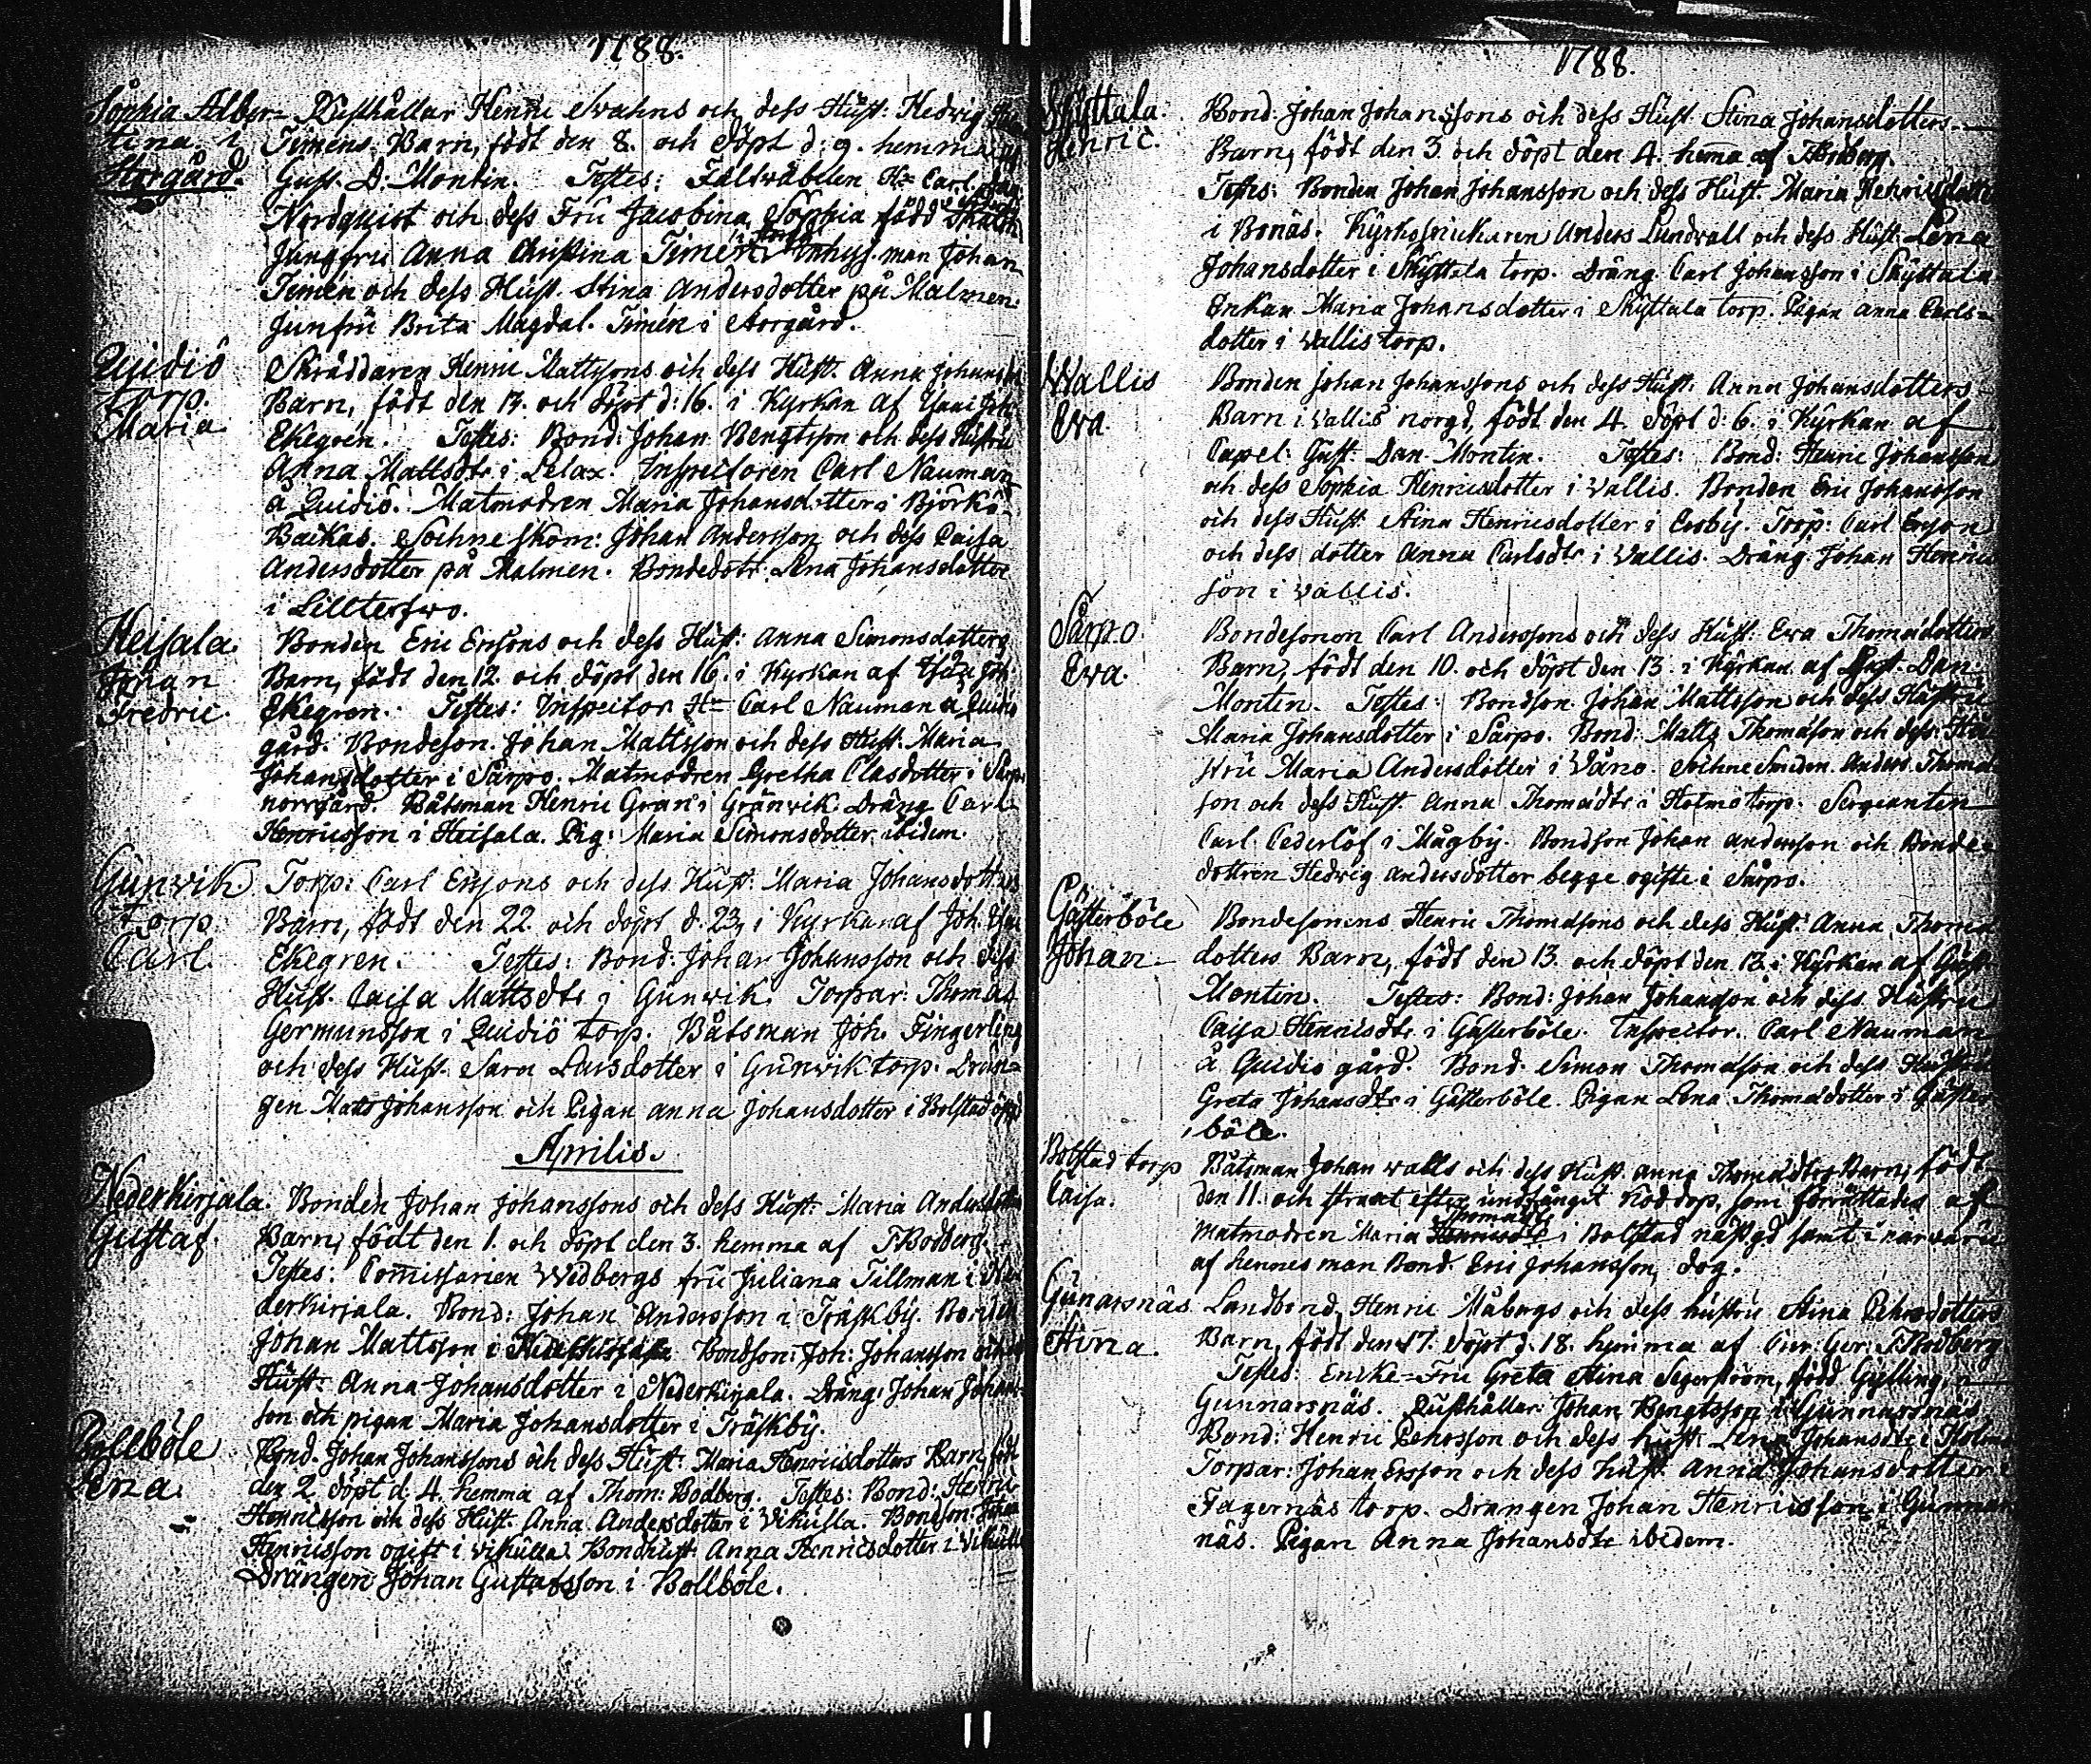 1788.
Sophia Alber=
tina i
Storgård.
Rusthållar Henric Svahns och dess Hust: Hedvig
Timens Barn, född den 8. och döpt d: 9. hemma af
Gust. D: Montin. Testes: Fältväbelen Hr Carl
Nordquist och dess Fru Jacobina Sophia född
Jungfru Anna Christina Timén Inhyss. man Johan
Timén och dess Hust. Stina Andersdotter på Malmen.
Junfru Brita Magdal. Timén i Storgård.
Quidiö
torp.
Maria
Skräddaren Henric Mattssons och dess Hust. Anna Johansdr
Barn, födt den 14. och döpt d: 16. i Kyrkan af
Ekegrén. Testes: Bond: Johan Bengtsson och dess Hustru
Anna Mattsdtr i Lelax. Inspectoren Carl Nauman
å Quidiö. Matmodren Maria Johansdotter i Björkö
Backas. Sochneskom: Johan Andersson och dess Caisa
Andersdotter på Malmen. Bondedotr: Lena Johansdotter
i Lilltervo.
Heisala
Johan
Fredric.
Bonden Eric Ersons och dess Hust: Anna Simonsdotters
Barn, födt den 12. och döpt den 16. i Kyrkan af
Ekegren. Testes: Inspector Hr Carl Nauman a Quidiö
gård. Bondeson. Johan Mattsson och dess Hust: Maria
Johansdotter i Särpo. Matmodren Gretha Clasdotter i Särpo
norrgård. Båtsman Henric Gran i Granvik. Dräng Carl
Henricsson i Heisala. Pig: Maria Simonsdotter ibidem.
Gunvik
torp
Carl.
Torp: Carl Erssons och dess Hust: Maria Johansdotters
Barn, födt den 22. och döpt d. 23, i Kyrkan af Joh.
Ekegren. Testes: Bond: Johan Johansson och dess
Hust. Caisa Mattsdtr i Gunvik. Torpar: Thomas
Germundsson i Quidiö torp. Båtsman Joh. Fingerling
och dess Hust. Sara Larsdotter i Gunvik torp. Drän=
gen Matts Johansson och Pigan anna Johansdotter i Bolstad
Aprilis.
Nederkirjala.
Gustaf.
Bonden Johan Johanssons och dess Hust: Maria Andersdotters
Barn, födt den 1. och döpt den 3. hemma af T Bodberg.
Testes: Comissarien Wedbergs fru Juliana Tillman i Ne
derkirjala. Bond: Johan Andersson i Träskby. Bonden
Johan Mattsson i Bondson: Joh: Johansson och dess
Hust: Anna Johansdotter i Nederkirjala. Dräng: Johan Johans=
son och pigan Maria Johansdotter i Träskby.
Bollböle
Lena.
Bond. Johan Johanssons och dess Hust: Maria Henricsdotters Barn, födt
den 2. döpt d: 4. hemma af Thom: Bodberg. Testes: Bond: Henric
Henricsson och dess Hust. Anna Andersdotter i Vikulla. Bondson: Johan
Henricsson ogift i Vikulla. Bondhust: Anna Henricsdotter i Vikulla
Drängen Johan Gustafsson i Bollböle.
1788.
Skyttala.
Henric.
Bond. Johan Johanssons och dess Hust. Stina Johansdotters
Barn, födt den 3. och döpt den 4. hema af T Bodberg.
Testes: Bonden Johan Johansson och dess Hust. Maria Henricsdotter
i Bonäs. Kyrkospickaren Anders Lundvall och dess Hust: Lena
Johansdotter i Skyttala torp. Dräng. Carl Johansson i Skyttala
Enkan Maria Johansdotter i Skyttala torp. Pigan anna Carls=
dotter i Vallis torp.
Wallis
Eva
Bonden Johan Johanssons och dess Hust: Anna Johansdotters
Barn i Vallis norgd, födt den 4. döpt d: 6. i Kyrkan af
Capel: Gust: Dan Montin. Testes: Bond: Henric Johansson
och dess Sophia Henricsdotter i Vallis. Bonden Eric Johansson
och dess Hust: Stina Henricsdotter i Ersby. Torp: Carl Erson
och dess dotter Anna Carlsdtr i Vallis. Dräng: Johan Henrics
son i Vallis.
Särpo
Eva.
Bondesonen Carl Anderssons och dess Hust: Eva Thomasdotters
Barn, födt den 10. och döpt den 13. i Kyrkan af Gust. Dan.
Montin. Testes: Bondson. Johan Mattsson och dess Hustru
Maria Johansdotter i Särpo. Bond: Matts Thomasson och dess Hu
stru Maria Andersdotter i Våno. Sochne Smeden. Anders Thomas
son och dess Hust. Anna Thomasdtr i Holmo torp. Sergeanten
Carl Cederlöf i Mågby. Bondson Johan andersson och Bonde=
dottren Hedvig andersdotter begge ogifte i Särpo.
Gästerböle
Johan
Bondesonens Henric Thomassons och dess Hust: Anna Thomas
dotters Barn, födt den 13. och döpt den 13. i Kyrkan af Gust
Montin. Testes: Bond: Johan Johansson och dess Hustru
Caisa Henricsdtr i Gästerböle. Inspector. Carl Nauman
å Quidio gård. Bond. Simon Thomasson och dess Hustru
Greta Johansdtr i Gästerböle. Pigan Lena Thomasdotter i Gäster
böle.
Bolstad torp
Caisa.
Båtsman Johan Valls och dess Hust. anna Thomasdtrs Barn, födt
den 11. och straxt efter undfångit nöddop, som förrättades af
matmodren Maria Thomasdtr i Bolstad näsgd samt i närvaru
af hennes man Bond. Eric Johansson, dog.
Gunarsnäs
Stina.
Landbond. Henric Måbergs och dess hustru Stina Pehrsdotters
Barn, födt den 17. döpt d. 18. hemma af Cur: Ger: T Bodberg
Testes: Encke-Fru Greta Stina Segerstroom, född Gylling,
Gunnarsnäs. Rusthållar Johan Bengtsson i Gunnarsnäs
Bond: Henric Pehrsson och dess hust: Lena Johansdtr i Holmo
Torpar: Johan Ersson och dess hust: Anna Johansdotter i
Fagernäs torp. Drängen Johan Henricsson i Gunnars
näs. Pigan Anna Johansdtr ibidem.